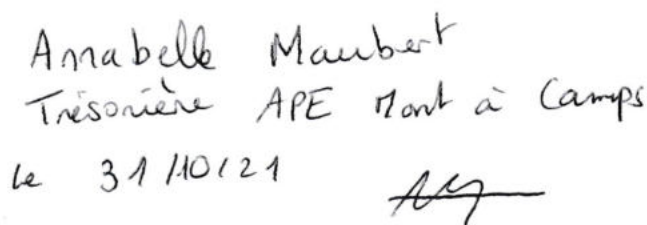 Annabelle Maubert
Trésorière APE Mont à Camps
le 31/10/21